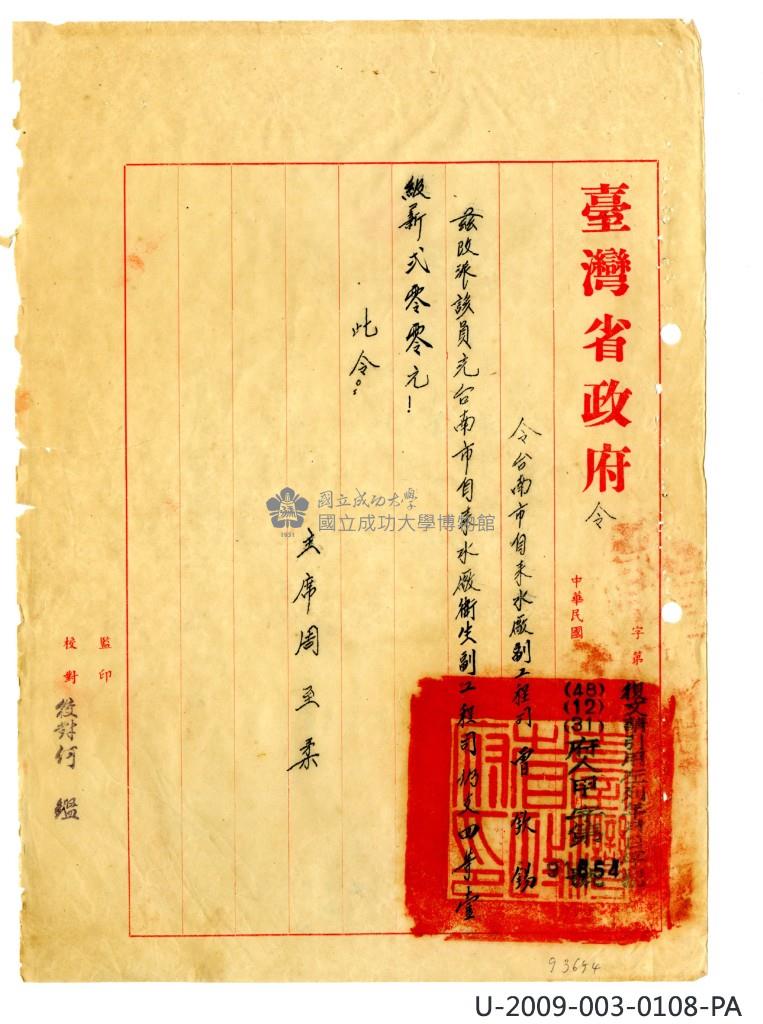 臺灣省政府令
字第
中華民國
復文請引用左列年月日字號
(48)(12)(31)府人甲字第
令台南市自來水廠副工程司曾欽錫
茲改派該員充台南市自來水廠衛生副工程司仍支四等壹
級薪弍零零元！
此令。
主席周至柔
監印
校對
校對何鑑
國立成功大學
國立成功大學博物館
1931
93654
U-2009-003-0108-PA